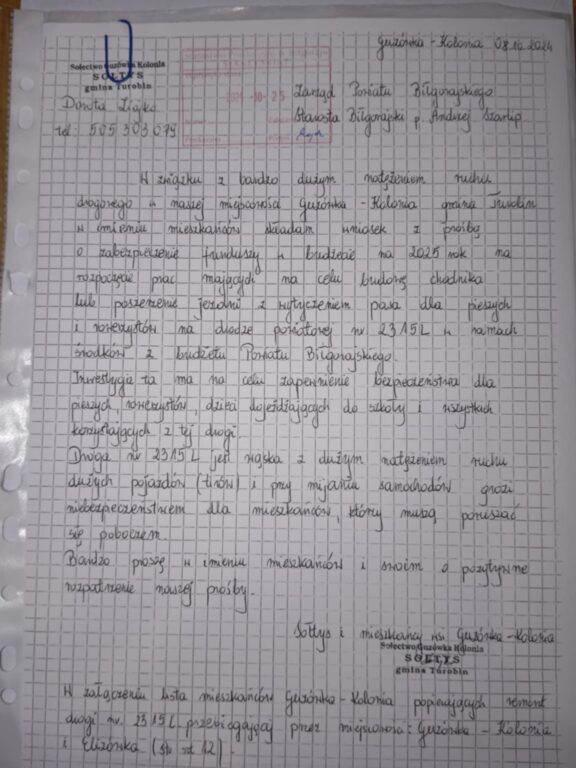 Guzówka - Kolonia 08.10.2024
Sołectwo Guzówka Kolonia
SOŁTYS
gmina Turobin
Dorota Ziajko
tel: 505 303 079
2024 -10- 25
Zarząd Powiatu Biłgorajskiego
Starosta Biłgorajski p. Andrzej Szarlip
W związku z bardzo dużym natężeniem ruchu
drogowego w naszej miejscowości Guzówka - Kolonia gmina Turobin
w imieniu mieszkańców składam wniosek z prośbą
o zabezpieczenie funduszy w budżecie na 2025 rok na
rozpoczęcie prac mających na celu budowę chodnika
lub poszerzenie jezdni z wytyczeniem pasa dla pieszych
i rowerzystów na drodze powiatowej nr 2315L w ramach
środków z budżetu Powiatu Biłgorajskiego.
Inwestycja ta ma na celu zapewnienie bezpieczeństwa dla
pieszych, rowerzystów, dzieci dojeżdżających do szkoły i wszystkich
korzystających z tej drogi.
Droga nr 2315L jest wąska z dużym natężeniem ruchu
dużych pojazdów (tirów) i przy mijaniu samochodów grozi
niebezpieczeństwem dla mieszkańców, którzy muszą poruszać
się poboczem.
Bardzo proszę w imieniu mieszkańców i swoim o pozytywne
rozpatrzenie naszej prośby.
Sołtys i mieszkańcy wsi Guzówka - Kolonia
Sołectwo Guzówka Kolonia
SOŁTYS
gmina Turobin
W załączeniu lista mieszkańców Guzówka - Kolonia popierających remont
drogi nr. 2315L przebiegającej przez miejscowości Guzówka - Kolonia
i Elizówka (str. 12).